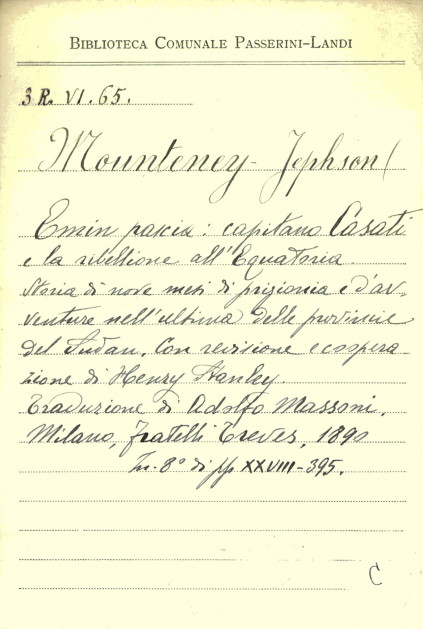 BIBLIOTECA COMUNALE PASSERINI-LANDI
3 R. VI. 65.
Mounteney-Jephson (
Emin pascia: capitano Casati
e la ribellione all'Equatoria.
Storia di nove mesi di prigionia e d'av-
venture nell'ultima delle provincie
del Sudan. Con revisione e coopera
zione di Henry Stanley.
Traduzione di Adolfo Massoni,
Milano, fratelli Treves, 1890
In-8° di pp XXVIII-395.
C